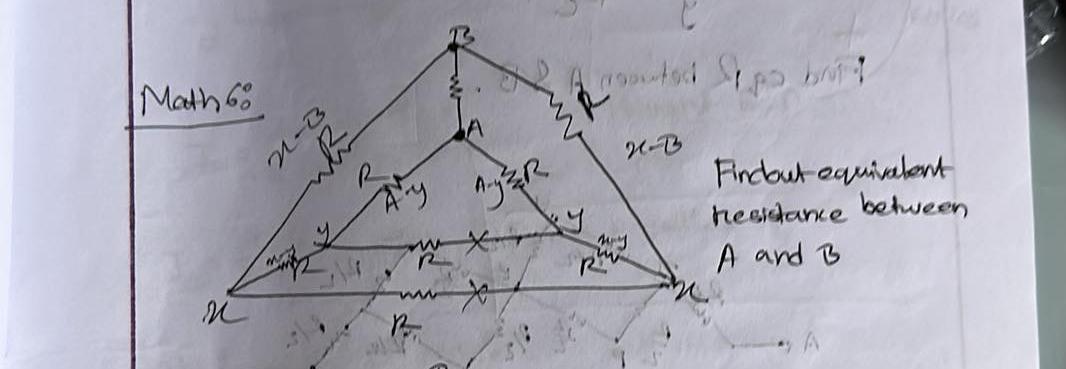 B
Math 6:
x-B
R
R
x-B
A
R
A-y
A-y
R
y
y
R
R
x-y
R
x
x
R
Find out equivalent
resistance between
A and B